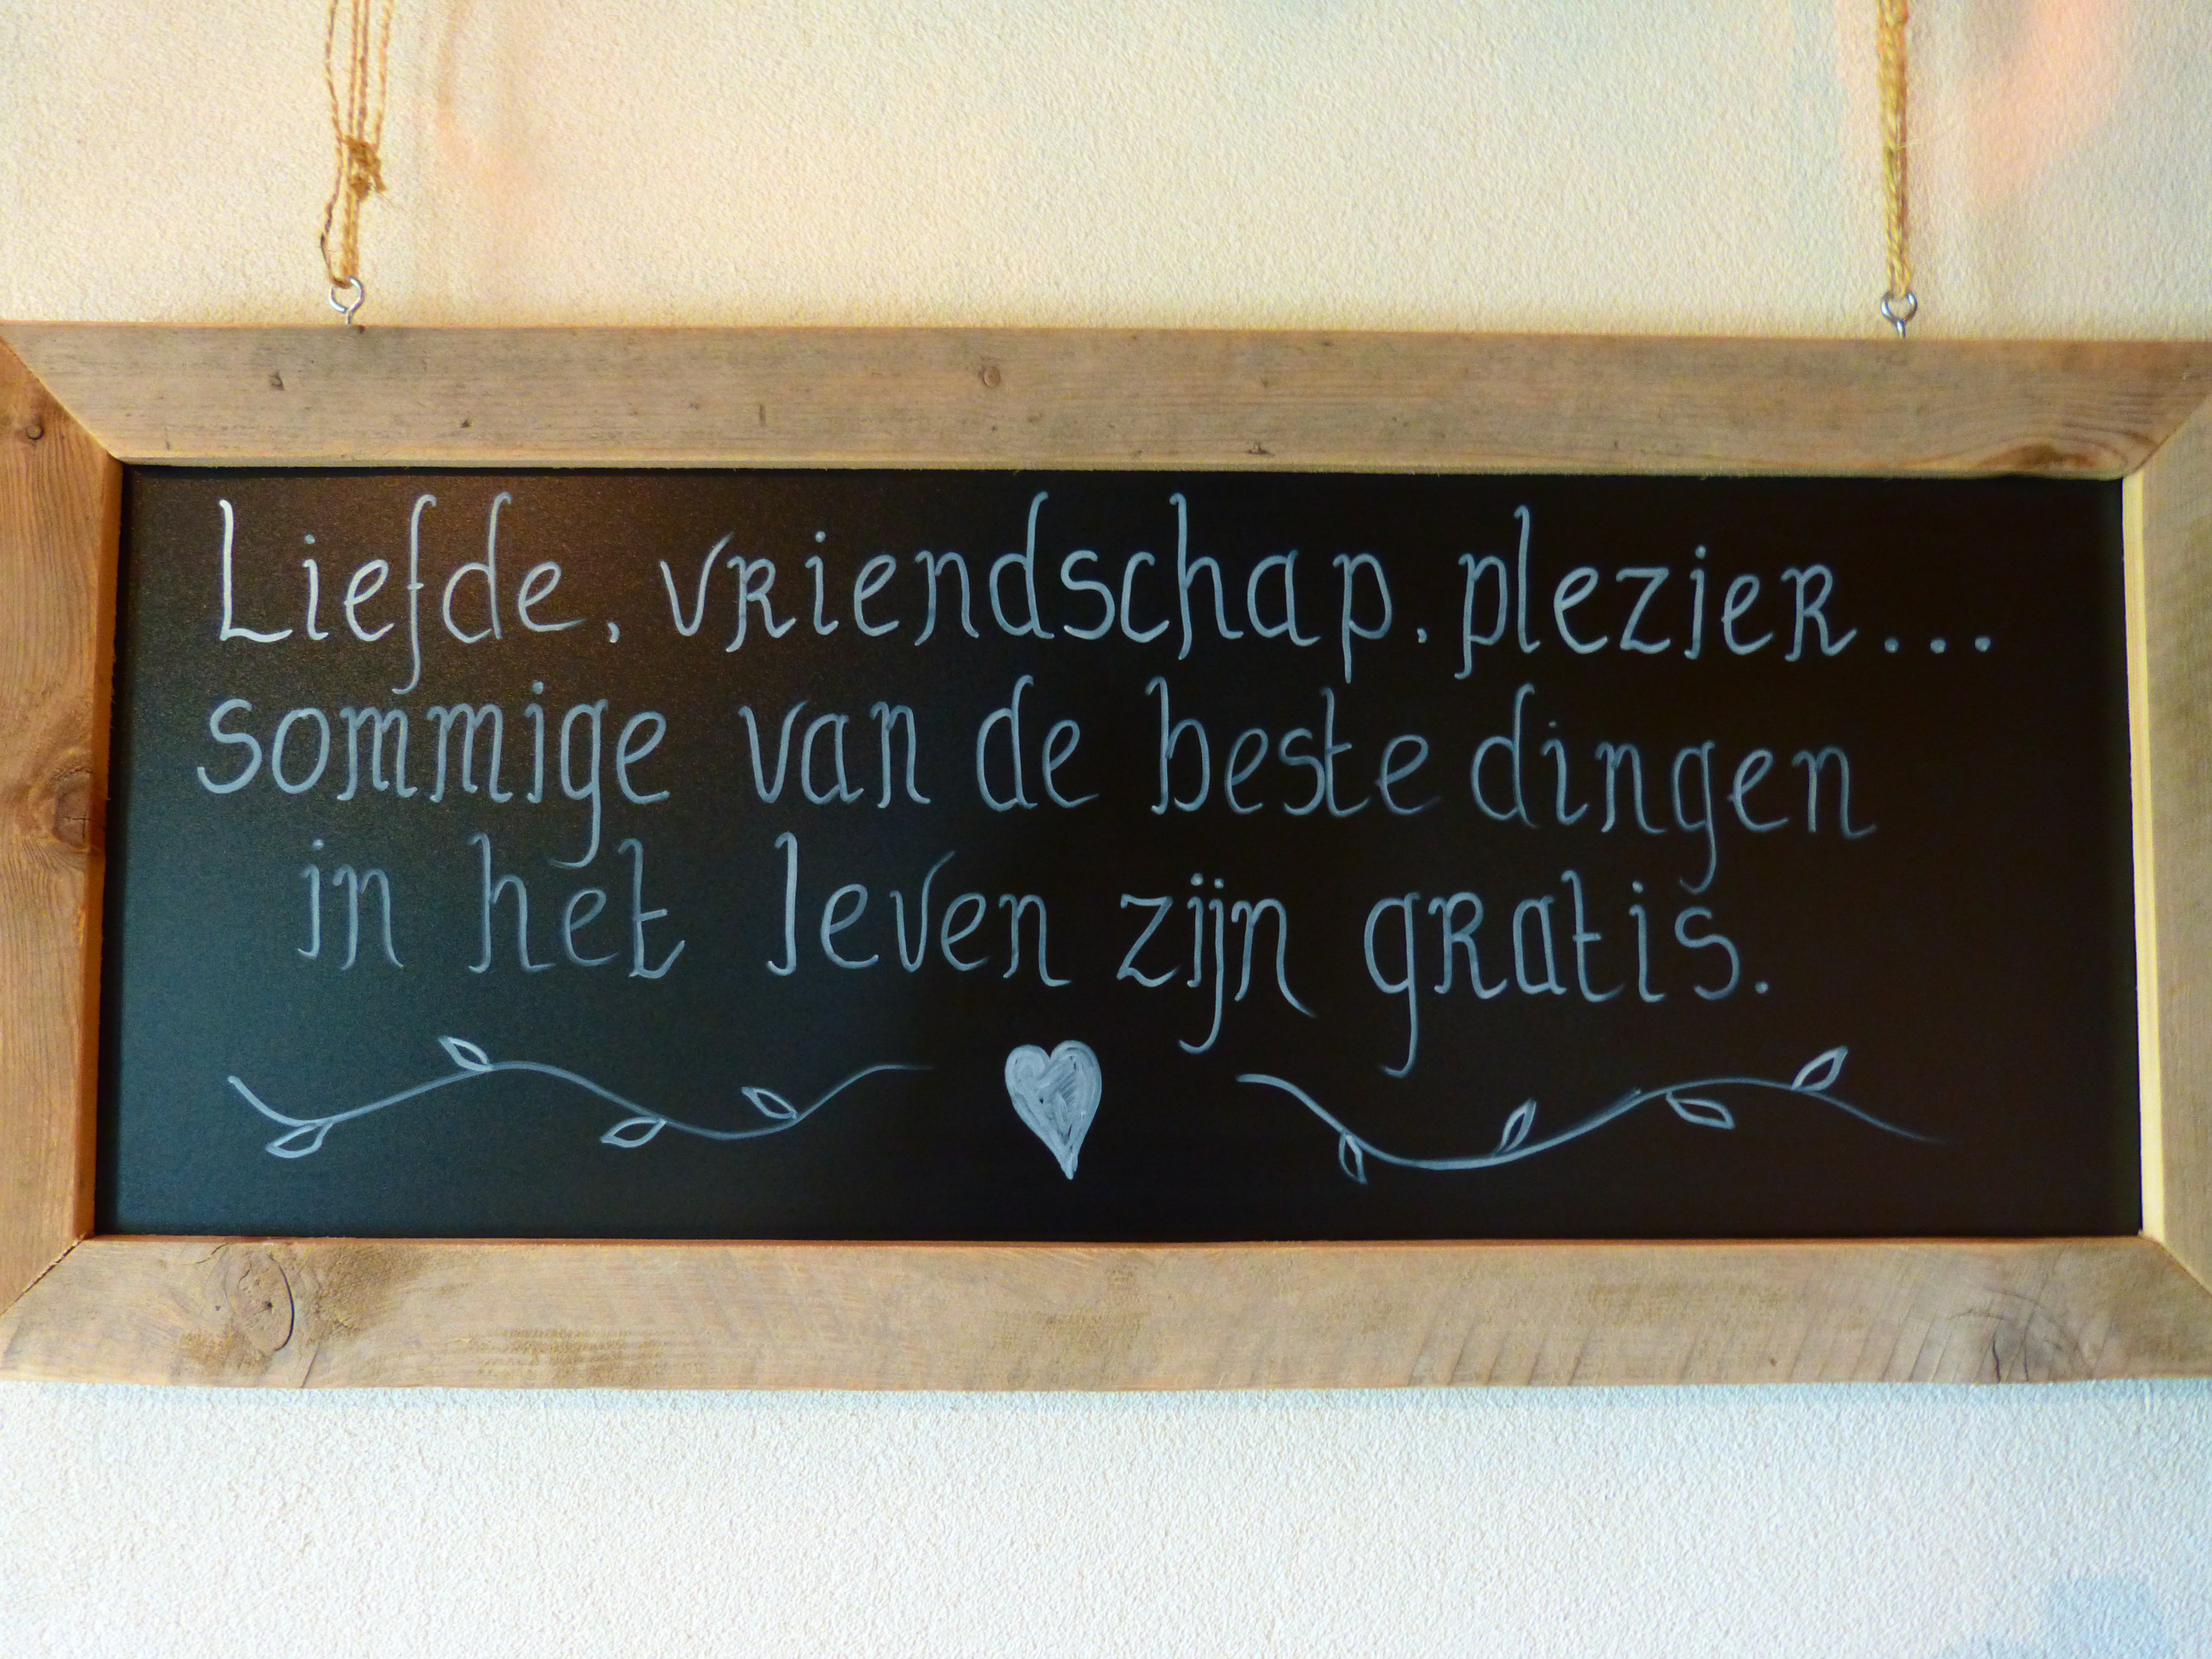 Liefde, vriendschap, plezier...
sommige van de beste dingen
in het leven zijn gratis.